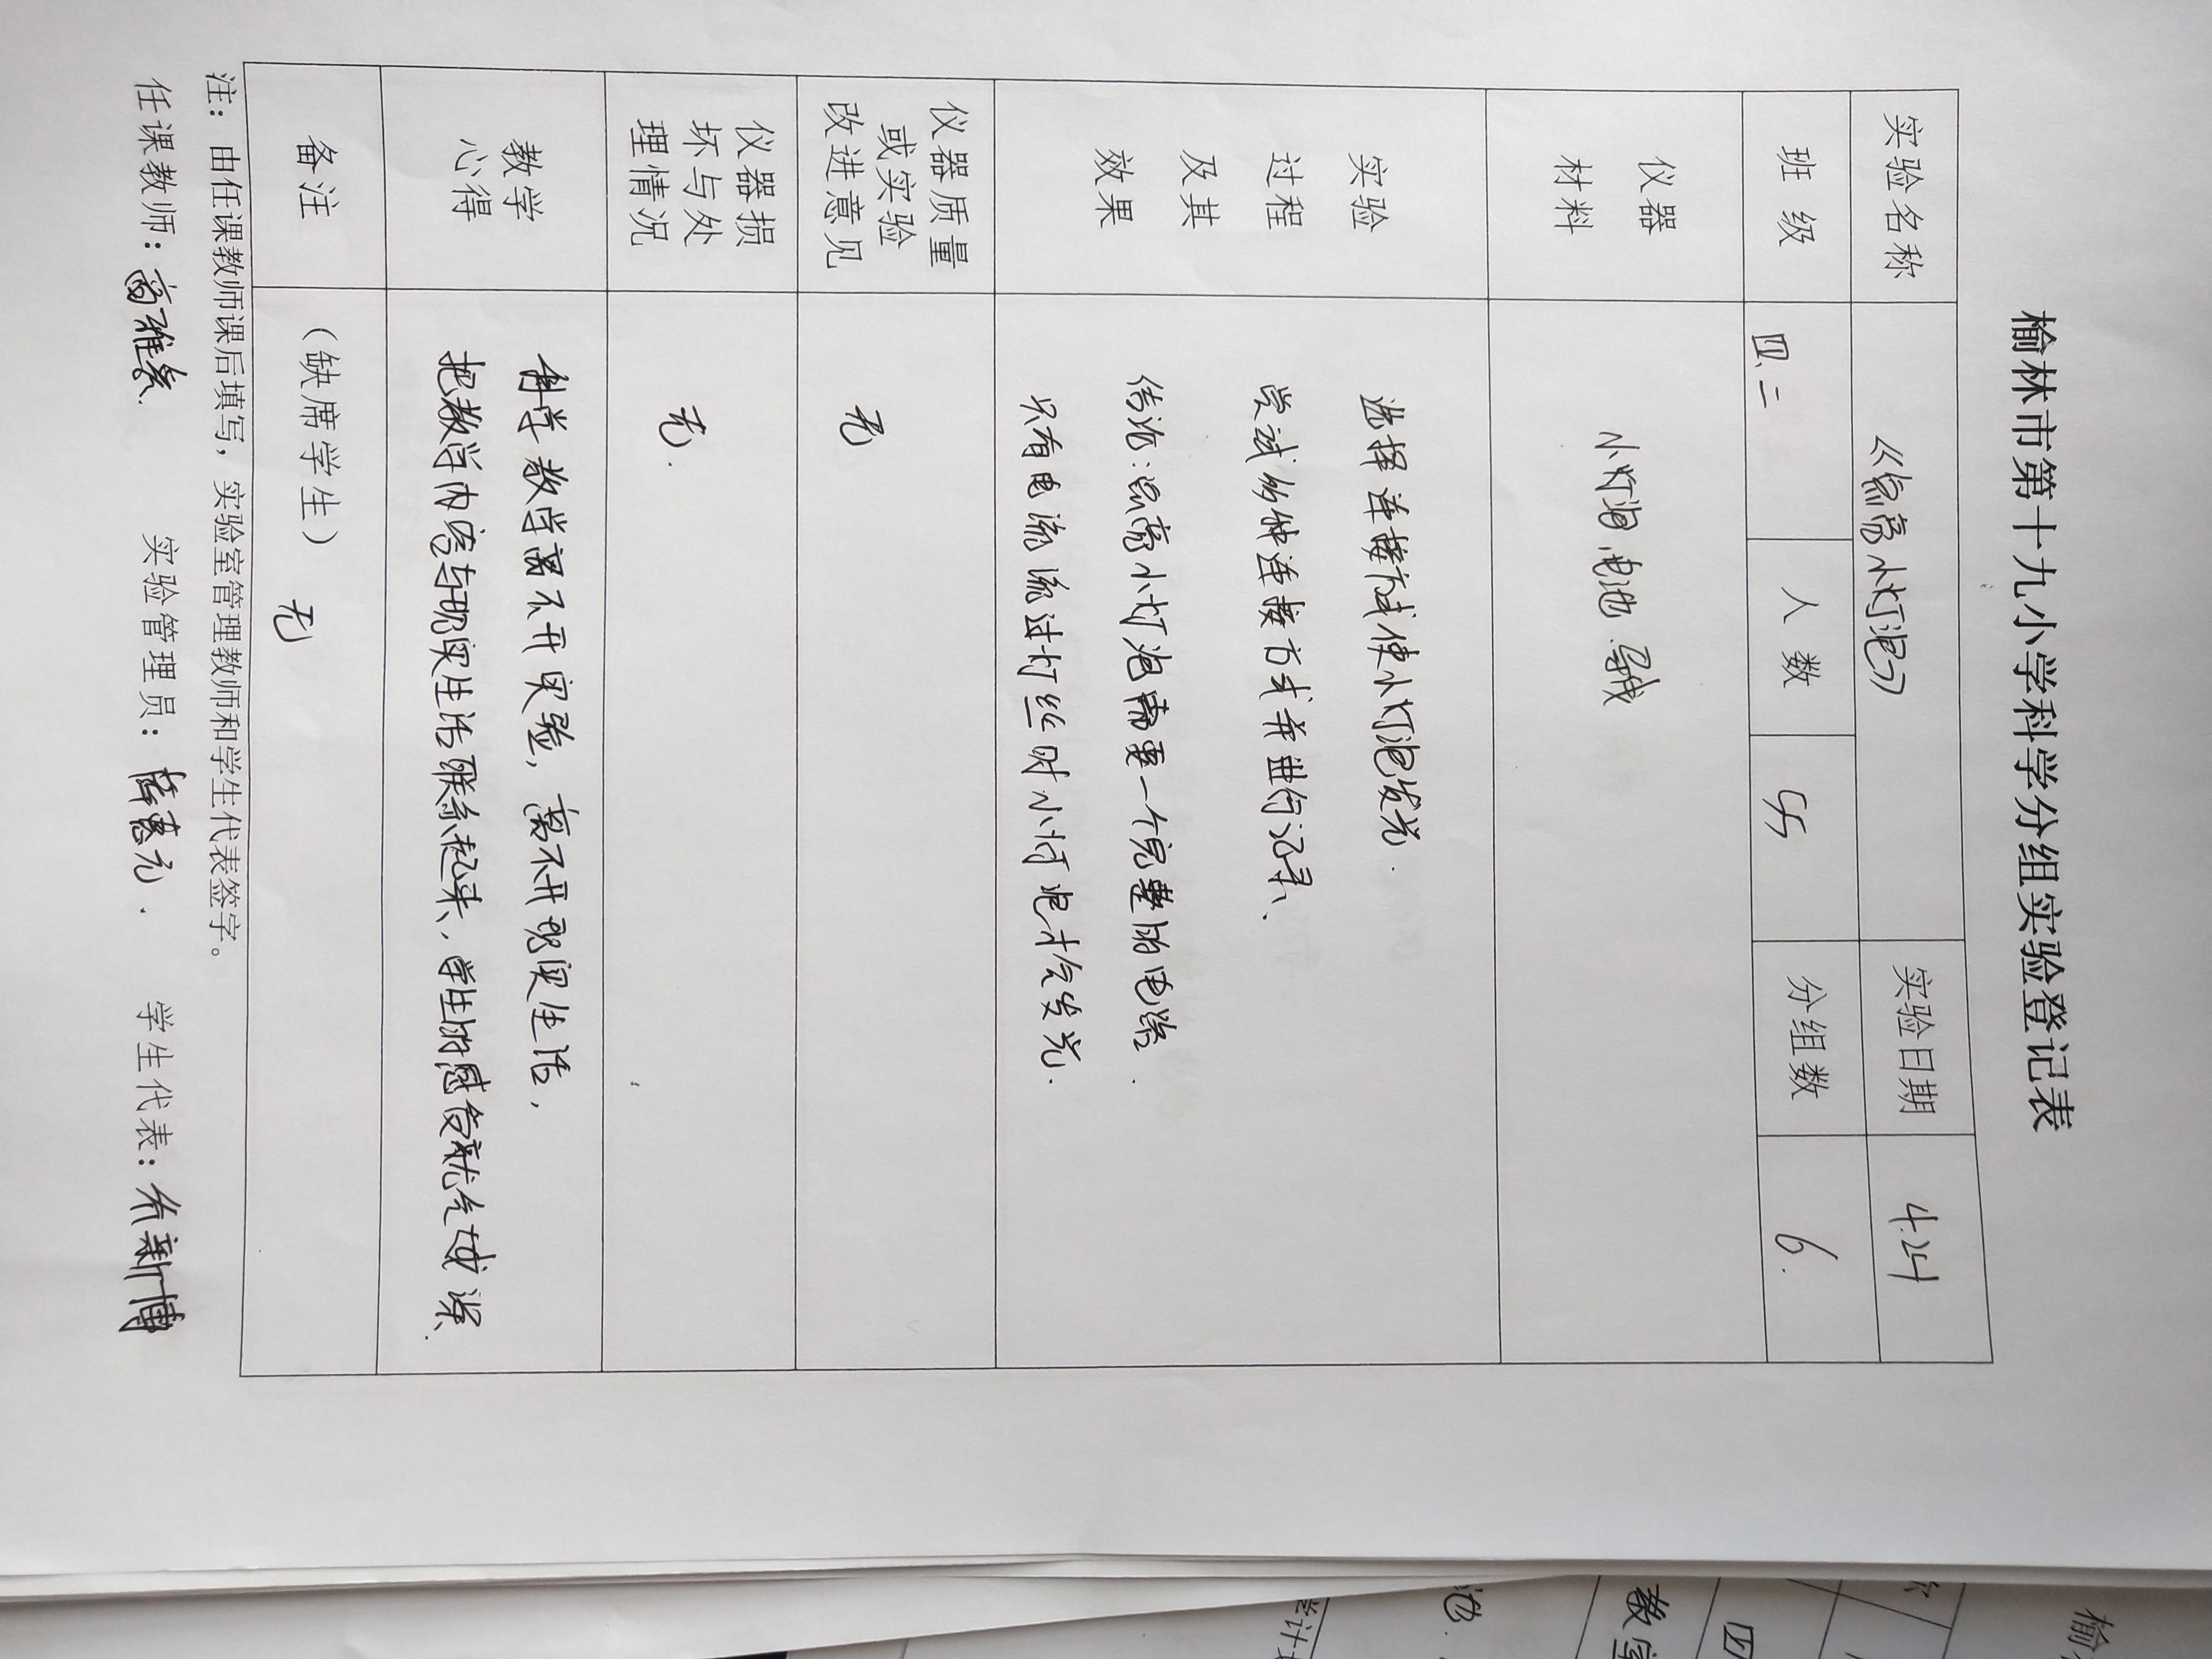 榆林市第十九小学科学分组实验登记表
实验名称 《点亮小灯泡》 实验日期 4.24
班级 四.二 人数 55 分组数 6.
仪器
材料
小灯泡 电池 导线
实验
过程
及其
效果
选择连接方式使小灯泡发光.
尝试多种连接方式并进行记录、
结论:点亮小灯泡需要一个完整的电路.
只有电流流过灯丝时小灯泡才会发光.
仪器质量
或实验
改进意见
无
仪器损
坏与处
理情况
无.
教学
心得
科学教学离不开实验,离不开现实生活,
把教学内容与现实生活联系起来、学生的感受就会越深.
备注 (缺席学生) 无
注:由任课教师课后填写,实验室管理教师和学生代表签字。
任课教师: 实验管理员: 学生代表: 新博